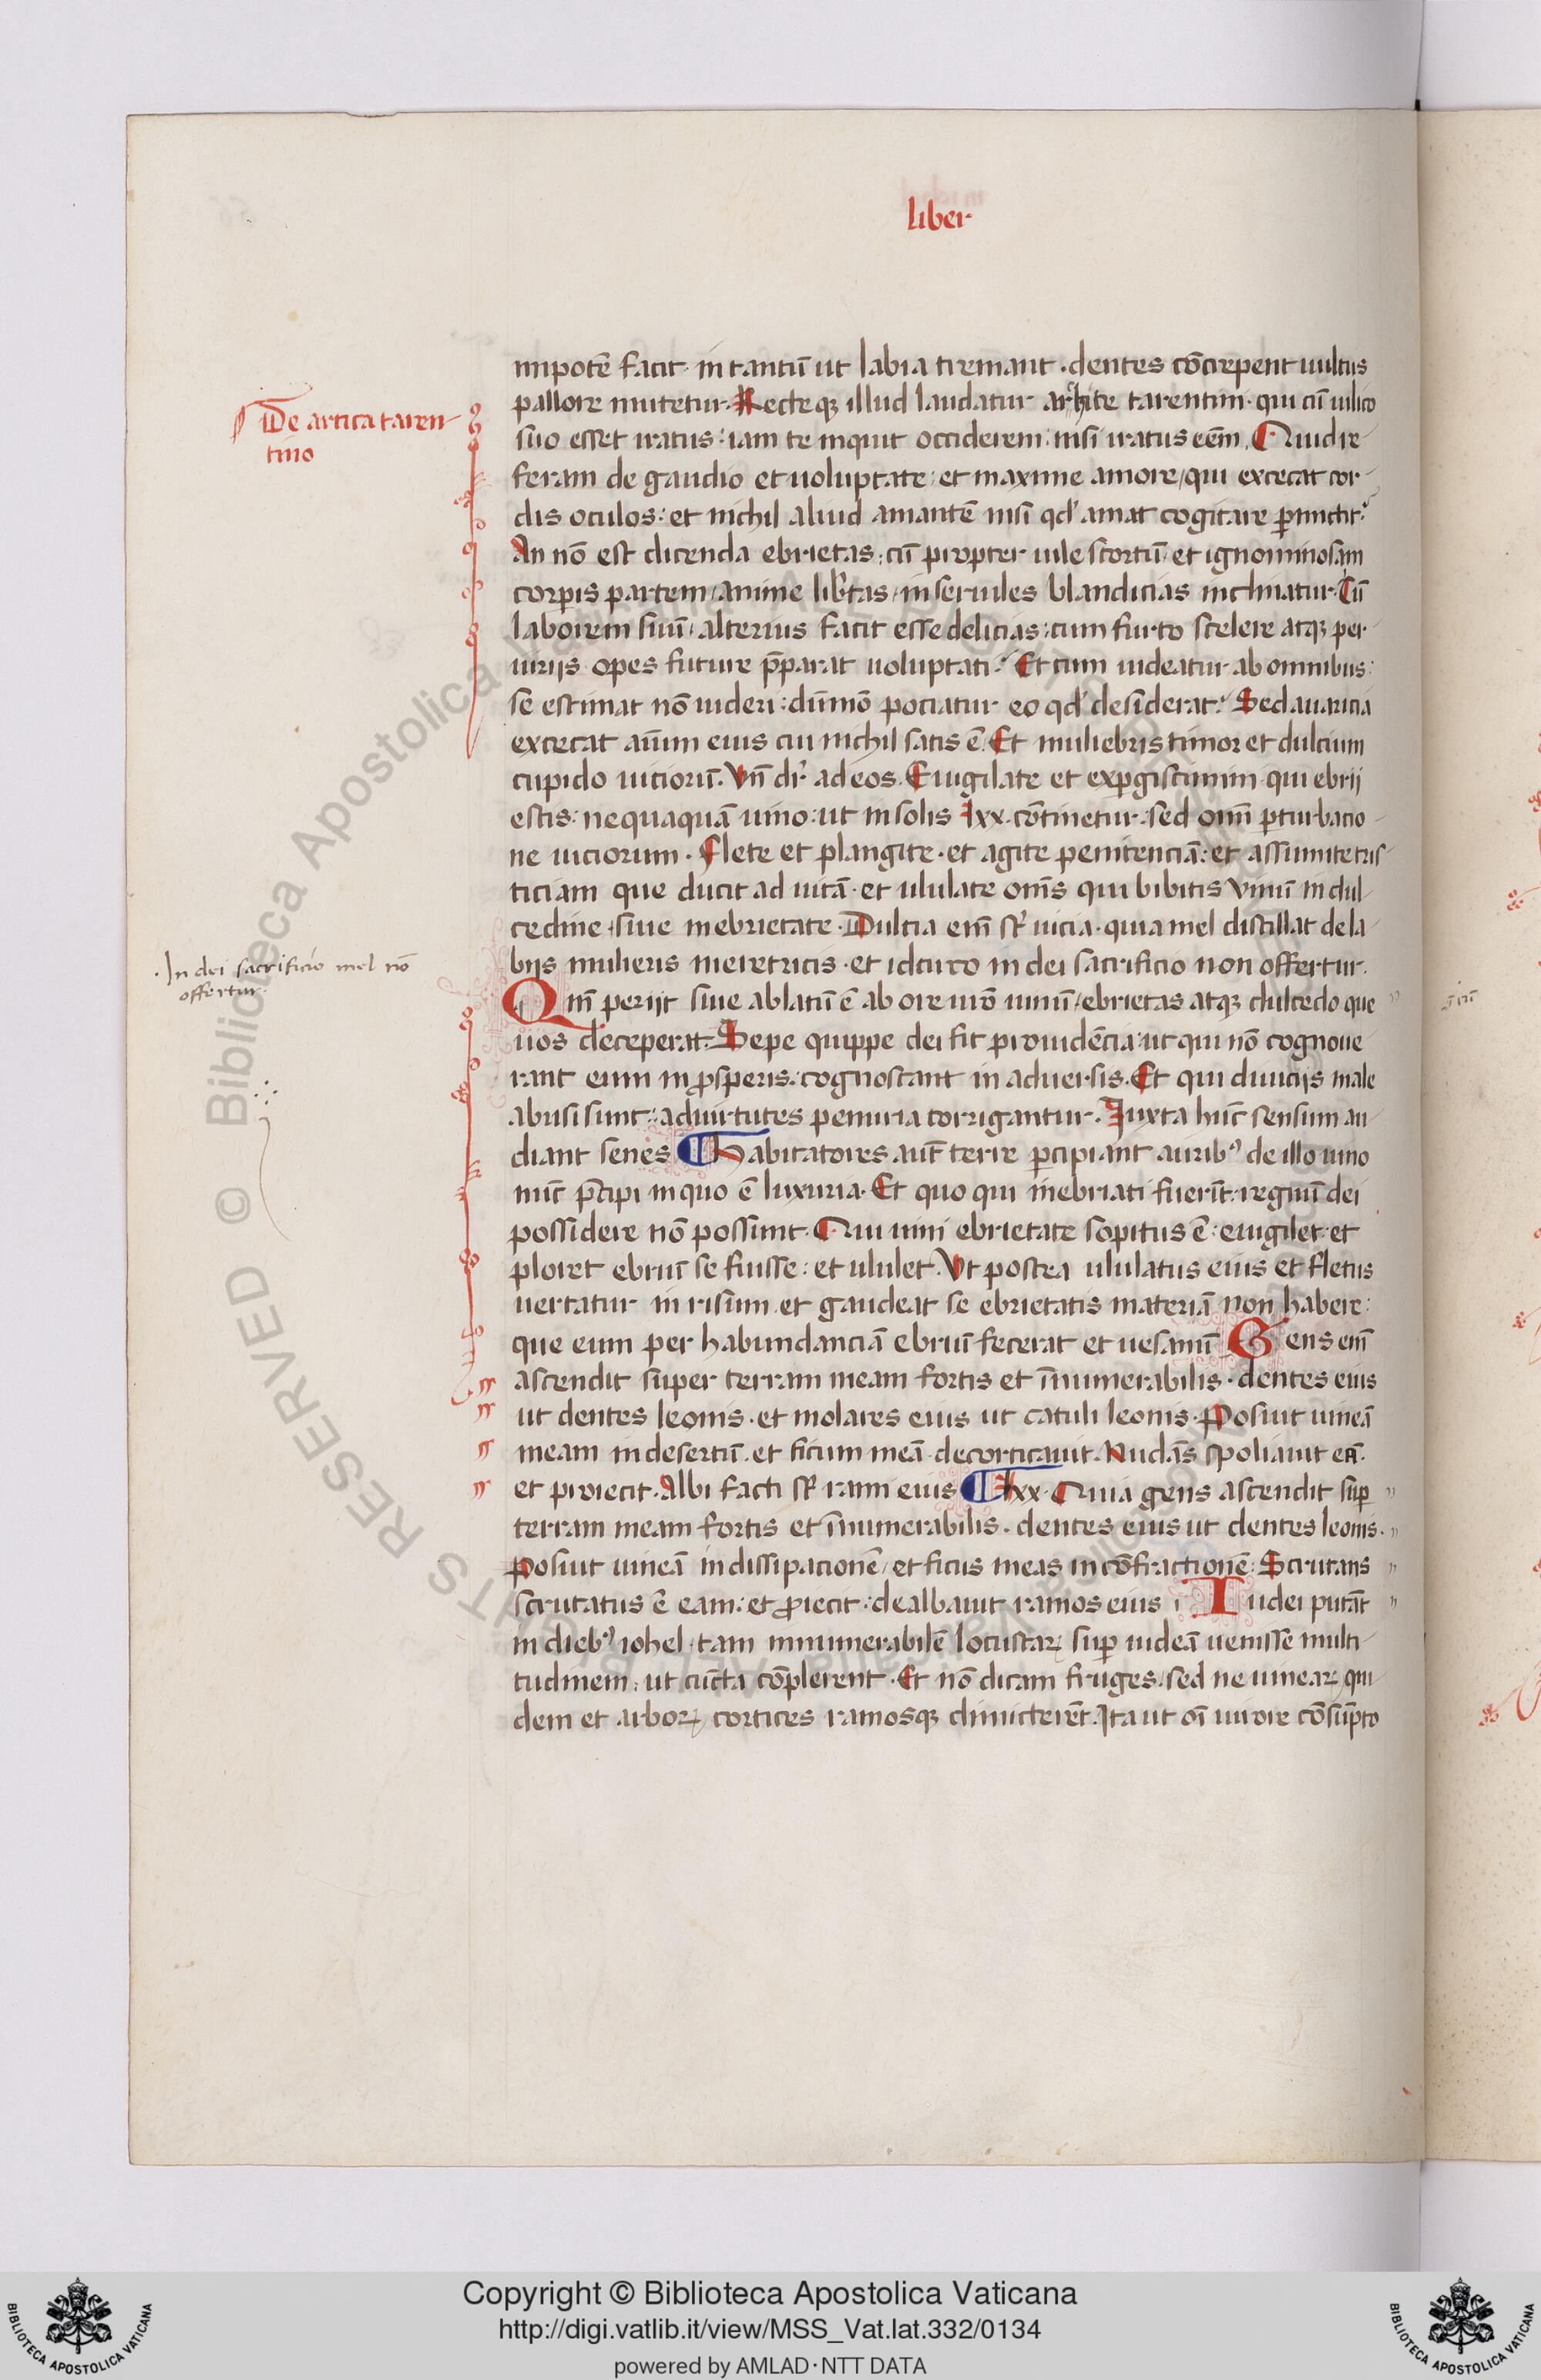 liber
impotē facit· in tantū ut labia tremant · dentes cōcrepent uultus
pallore mutetur. Recteqꝫ illud laudatur architę tarentini· qui cū uilico
suo esset iratus: iam te inquit occiderem: nisi iratus eēm. Quid re-
feram de gaudio et uoluptate: et maxime amore, qui excecat cor-
dis oculos: et nichil aliud amantē nisi qd' amat cogitare ꝑmictit?
An nō est dicenda ebrietas: cū propter uile scortū et ignominosam
corꝑis partem, anime lib'tas, in seruiles blandicias inclinatur. Cū
laborem suū, alterius facit esse delicias: cum furto scelere atqꝫ per-
iurijs opes future p̄parat uoluptati? Et cum uideatur ab omnibus:
se estimat nō uideri: dūmō pociatur eo qd' desiderat? Sed auaricia
excecat aīum eius cui nichil satis ē. Et muliebris timor et dulcium
cupido uiciorū. Vn̄ dr̄ ad eos. Euigilate et expgiscimini qui ebrij
estis: nequaquā uino: ut in solis lxx. cōtinetur: sed omī ꝑturbacio-
ne uiciorum. Flete et plangite· et agite penitenciā: et assumite tris-
ticiam que ducit ad uitā· et ululate om̄s qui bibitis vinū in dul-
cedine siue in ebrietate. Dulcia em̄ st̄ uicia· quia mel distillat de la-
bijs mulieris meretricis· et idcirco in dei sacrificio non offertur.
Qm̄ perijt siue ablatū ē ab ore ur̄o uinū, ebrietas atqꝫ dulcedo que
uos deceperat. Sepe quippe dei fit prouidēcia: ut qui nō cognoue
rant eum in ꝓsperis: cognoscant in aduersis. Et qui diuicijs male
abusi sunt: ad uirtutes penuria corrigantur. Juxta hūc sensum au-
diant senes Habitatores aut̄ terre ꝑcipiant aurib' de illo uino
nūc p̄cipi in quo ē luxuria. Et quo qui inebriati fuerīt: regnū dei
possidere nō possunt. Qui uini ebrietate sopitus ē: euigilet: et
ploret ebriū se fuisse: et ululet. Vt postea ululatus eius et fletus
uertatur in risum et gaudeat se ebrietatis materiā non habere:
que eum per habundanciā ebriū fecerat et uesanū Gens em̄
ascendit super terram meam fortis et īnumerabilis· dentes eius
ut dentes leonis· et molares eius ut catuli leonis. Posuit uineā
meam in desertū. et ficum meā decorticauit. Nudās spoliauit eā.
et proiecit. Albi facti st̄ rami eius lxx. Quia gens ascendit suꝑ
terram meam fortis et īnumerabilis. dentes eius ut dentes leonis.
Posuit uineā in dissipacionē, et ficus meas in cōfractionē. Scrutans
scrutatus ē eam: et ꝓiecit: dealbauit ramos eius Iudei putāt
in dieb' iohel tam innumerabilē locustaꝝ suꝑ iudeā uenisse multi-
tudinem: ut cūcta cōplerent. Et nō dicam fruges, sed ne uineaꝝ qui-
dem et arboꝝ cortices ramosqꝫ dimicterēt. Ita ut oī uirore cōsūpto
De artica taren
tino
In dei sacrificio mel nō
offertur.
Copyright © Biblioteca Apostolica Vaticana
http://digi.vatlib.it/view/MSS_Vat.lat.332/0134
powered by AMLAD·NTT DATA
BIBLIOTECA APOSTOLICA VATICANA
BIBLIOTECA APOSTOLICA VATICANA